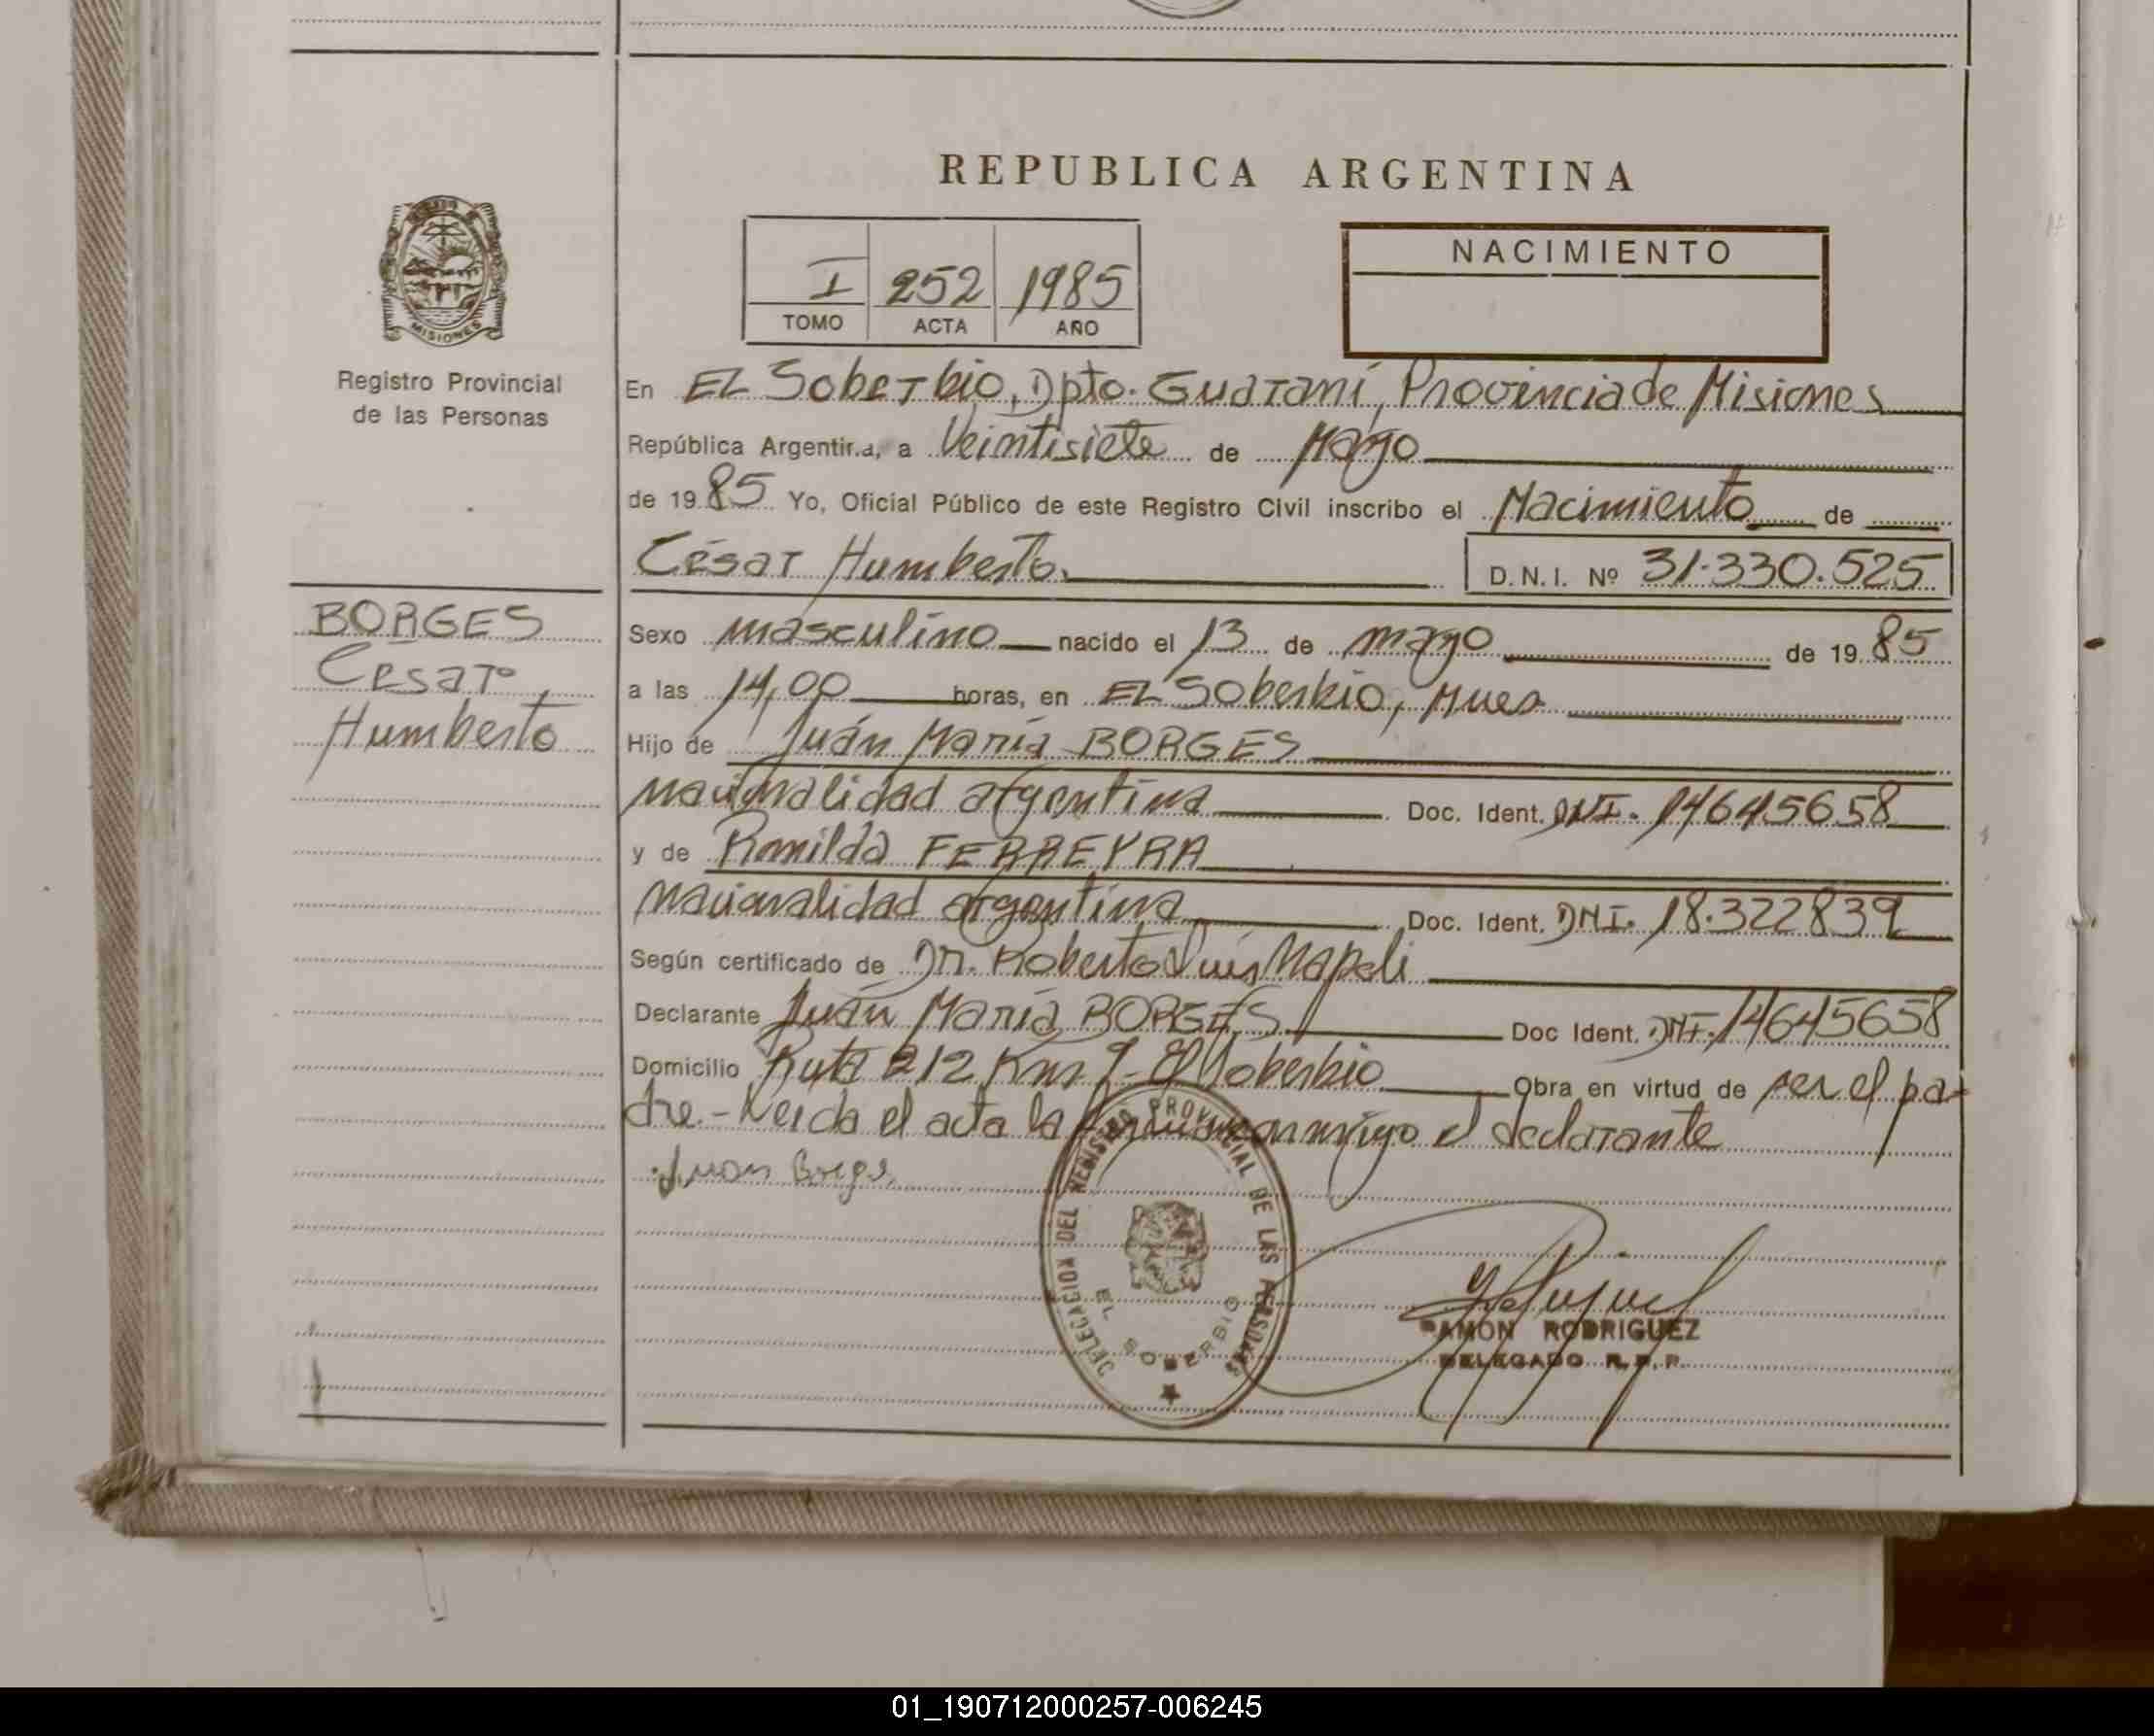 REPUBLICA ARGENTINA
I 252 1985
TOMO ACTA AÑO
NACIMIENTO
MISIONES
Registro Provincial
de las Personas
En EL Soberbio, Dpto. Guaraní, Provincia de Misiones
República Argentina, a Veintisiete de Mayo
de 1985 Yo, Oficial Público de este Registro Civil inscribo el Nacimiento de
César Humberto. D.N.I. Nº 31.330.525
BORGES
César
Humberto
Sexo masculino nacido el 13 de mayo de 1985
a las 14,00 horas, en EL Soberbio, Mnes
Hijo de Juán María BORGES
nacionalidad argentina Doc. Ident. DNI. 14645658
y de Romilda FERREYRA
nacionalidad argentina Doc. Ident. DNI. 18.322839
Según certificado de Dr. Roberto Luis Napoli
Declarante Juán María BORGES Doc Ident. DNI. 14645658
Domicilio Ruta 212 Km 9 - El Soberbio Obra en virtud de ser el pa-
dre.- Leida el acta la conmigo el declarante
Juan Borge
DELEGACION DEL REGISTRO PROVINCIAL DE LAS PERSONAS
EL SOBERBIO
RAMON RODRIGUEZ
DELEGADO R.P.P.
01_190712000257-006245